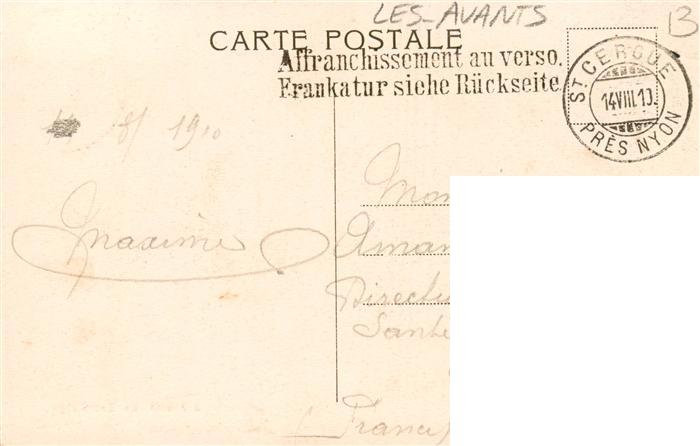 LES-AVANTS
B
CARTE POSTALE
Affranchissement au verso.
Frankatur siehe Rückseite
ST CERGUE
14 VIII.10.
PRÈS NYON
8/ 1910
Maxime
Mon
Aman
Directeu
Sante
(Franc